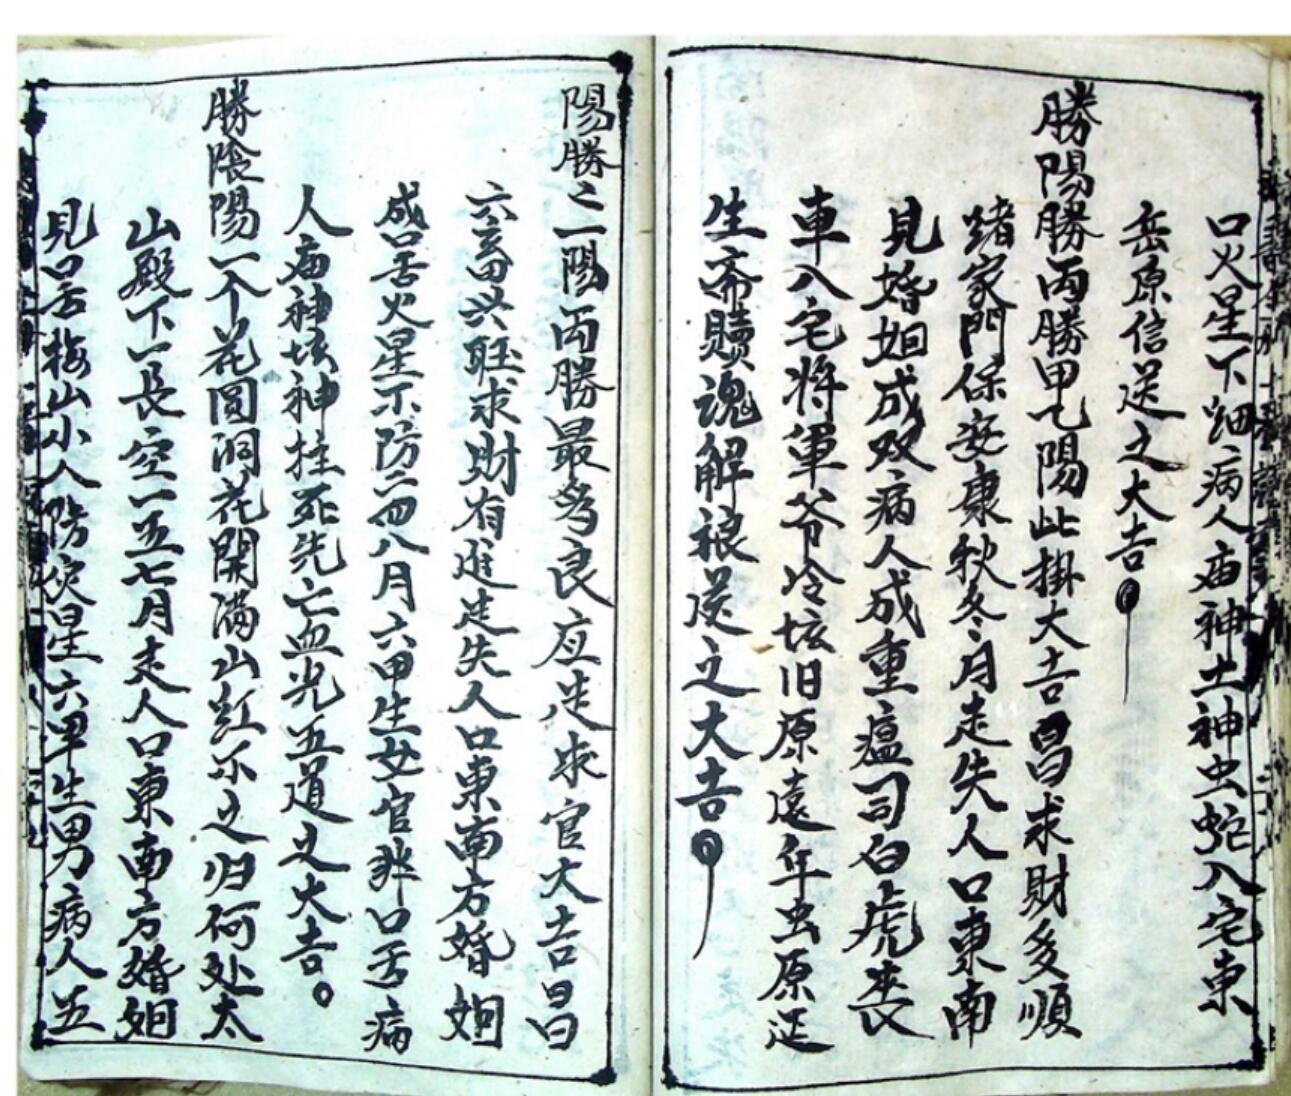 口火星下 病人庙神土神虫蛇入宅東
岳原信送之大吉
勝陽勝丙勝甲乙陽此掛大吉昌求財多順
緒家門保安康秋冬月走失人口東南
見婚姻成双病人成重瘟司白虎喪
車入宅将軍爷冷坛旧原遠年虫原延
生斋贖魂解 送之大吉
陽勝之一陽丙勝最为良应是求官大吉昌
六畜兴旺求財有進走失人口東南方婚姻
成口舌火星不防二四八月六甲生女官非口舌病
人庙神坛神柱死先亡血光五道之大吉
勝陰陽一个花園洞花開满山虹不之归何处太
山殿下一長空一五七月走人口東南方婚姻
見口舌梅山小人防灾星六甲生男病人五